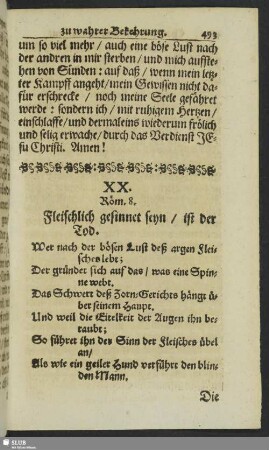 zu wahrer Bekehrung. 493
um so viel mehr / auch eine böse Lust nach
der andren in mir sterben / und mich aufste-
hen von Sünden: auf daß / wenn mein letz-
ter Kampff angeht / mein Gewissen nicht da-
für erschrecke / noch meine Seele gefähret
werde: sondern ich / mit ruhigem Hertzen /
einschlaffe / und dermaleins wiederum frölich
und selig erwache / durch das Verdienst JE-
su Christi. Amen!
XX.
Röm. 8.
Fleischlich gesinnet seyn / ist der
Tod.
Wer nach der bösen Lust deß argen Flei-
sches lebt;
Der gründet sich auf das / was eine Spin-
ne webt.
Das Schwert deß Zorn-Gerichts hängt ü-
ber seinem Haupt.
Und weil die Eitelkeit der Augen ihn be-
raubt;
So führet ihn der Sinn der Fleisches übel
an /
Als wie ein geiler Hund verführt den blin-
den Mann.
Die
SLUB